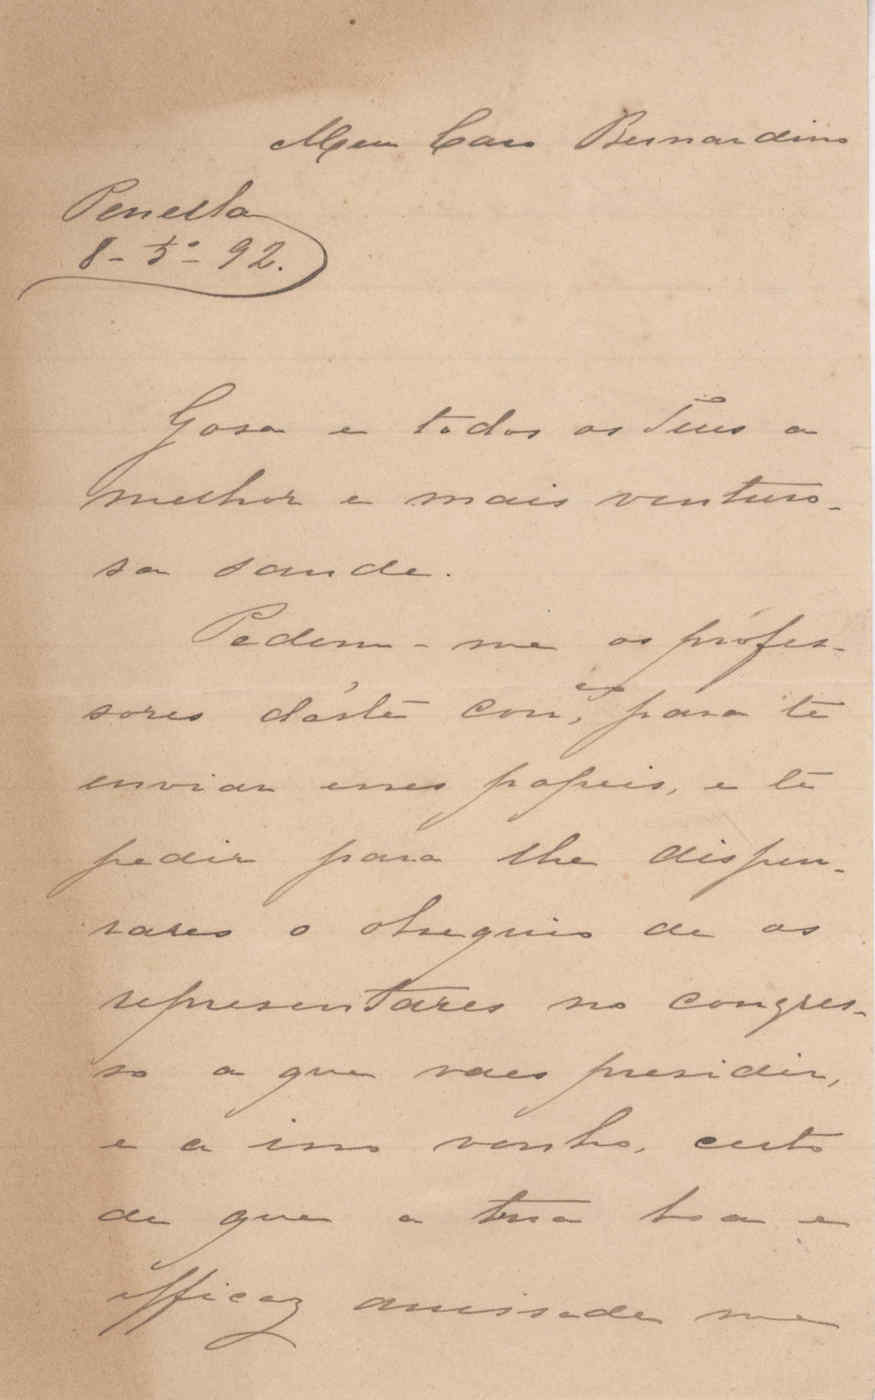 Meu Caro Bernardino
Penella
8-5º-92.
Gosa e todos os Teus a
melhor e mais venturo-
sa saude.
Pedem-me os profes-
sores d'áste con,ço para te
enviar esses papeis, e te
pedir para lhe dispen-
sares o obsequio de os
representares no congres-
so a que vaes presidir,
e a isso venho, certo
de que a tua boa e
efficaz amissade me